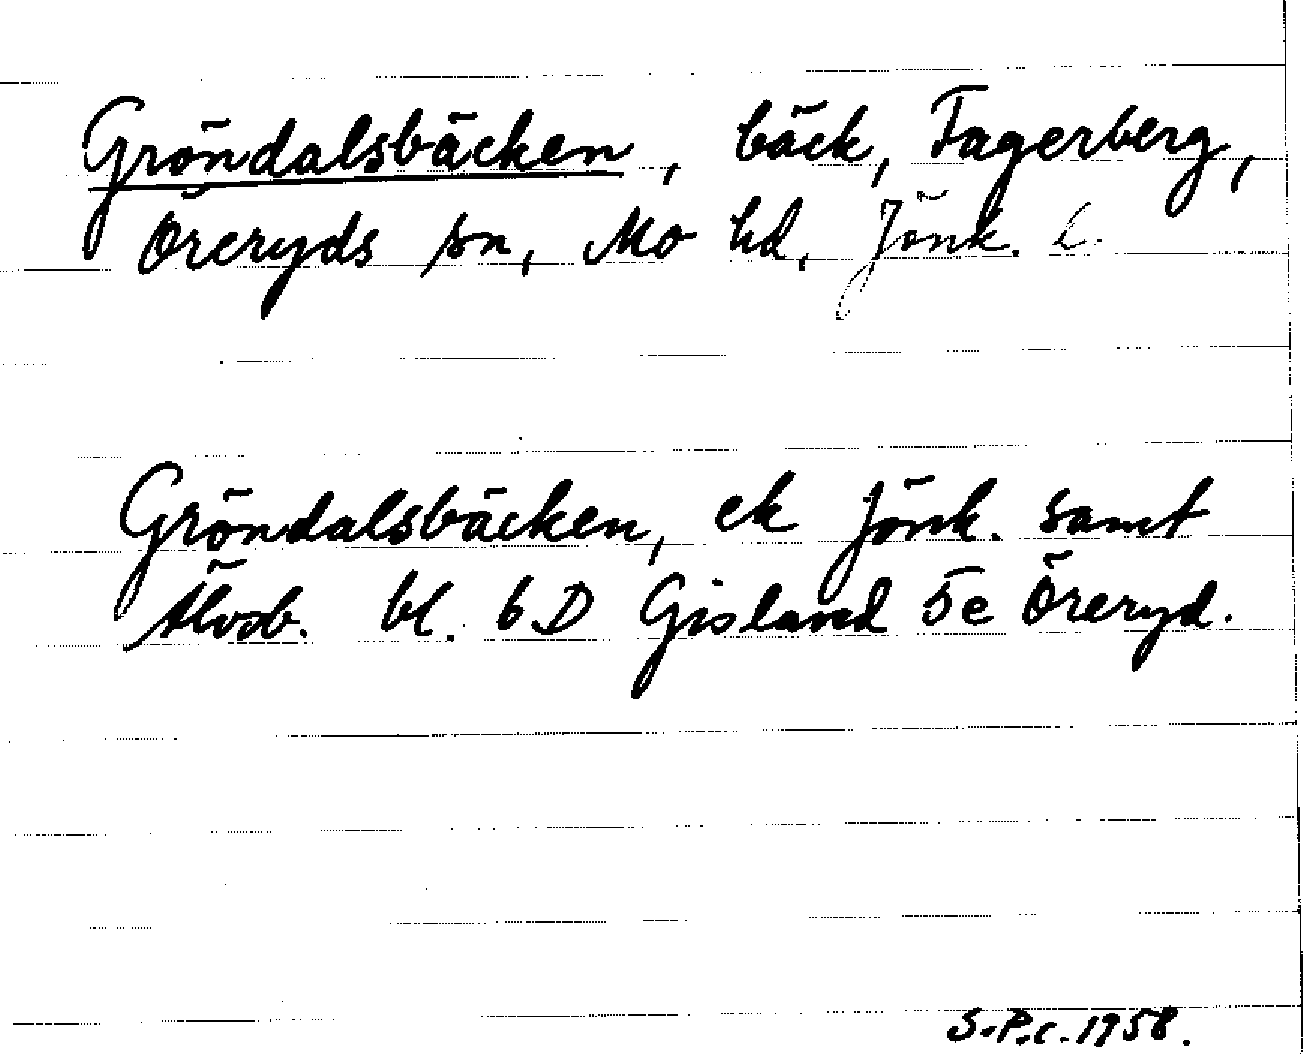 Gröndalsbäcken, bäck, Fagerberg,
Öreryds sn, Mo hd, Jönk. l.
Gröndalsbäcken, ek Jönk. samt
Älvsb. bl. 6D Gisland 5e Öreryd.
S.P.c. 1958.